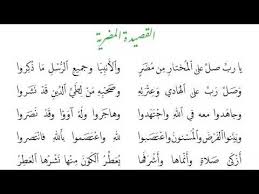 القصيدة المضرية
يا رب صل على المختار من مضر والأنبيا وجميع الرسل ما ذكروا
وصل رب على الهادي وعترته وصحبه من لطي الدين قد نشروا
وجاهدوا معه في الله واجتهدوا وهاجروا وله آووا وقد نصروا
وبينوا الفرض والمسنون واعتصبوا لله واعتصموا بالله فانتصروا
أزكى صلاة وأنماها وأشرفها يعطر الكون منها نشرها العطر